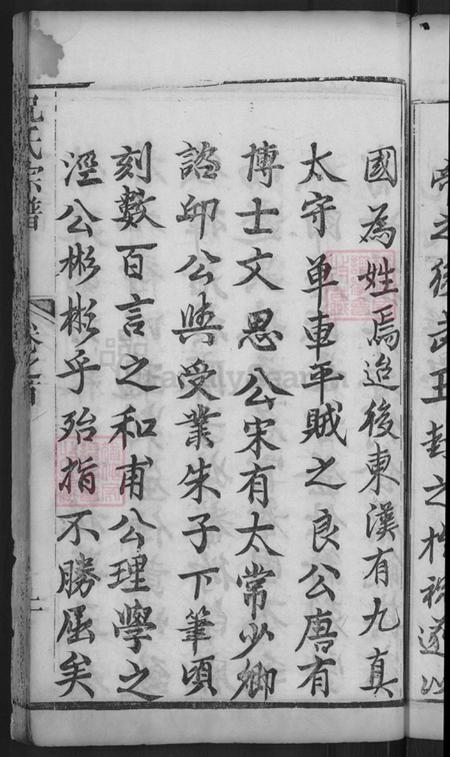 帝之後武王封之於祝遂以
國為姓焉迨後東漢有九真
太守单車平賊之良公唐有
博士文思公宋有太常少卿
諮邱公與受業朱子下筆頃
刻數百言之和甫公理學之
溼公彬彬乎殆指不勝屈矣
祝氏宗譜
卷之首
FamilySearch